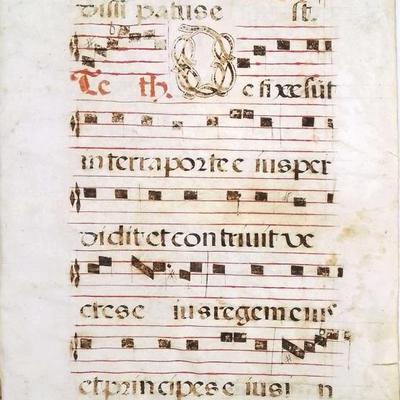 dissi patus e st.
Te th. D e fixe sūt
in terra porte e ius per
didit et contriuit ve
ctes e ius regem eius
et prin cipes e ius i n